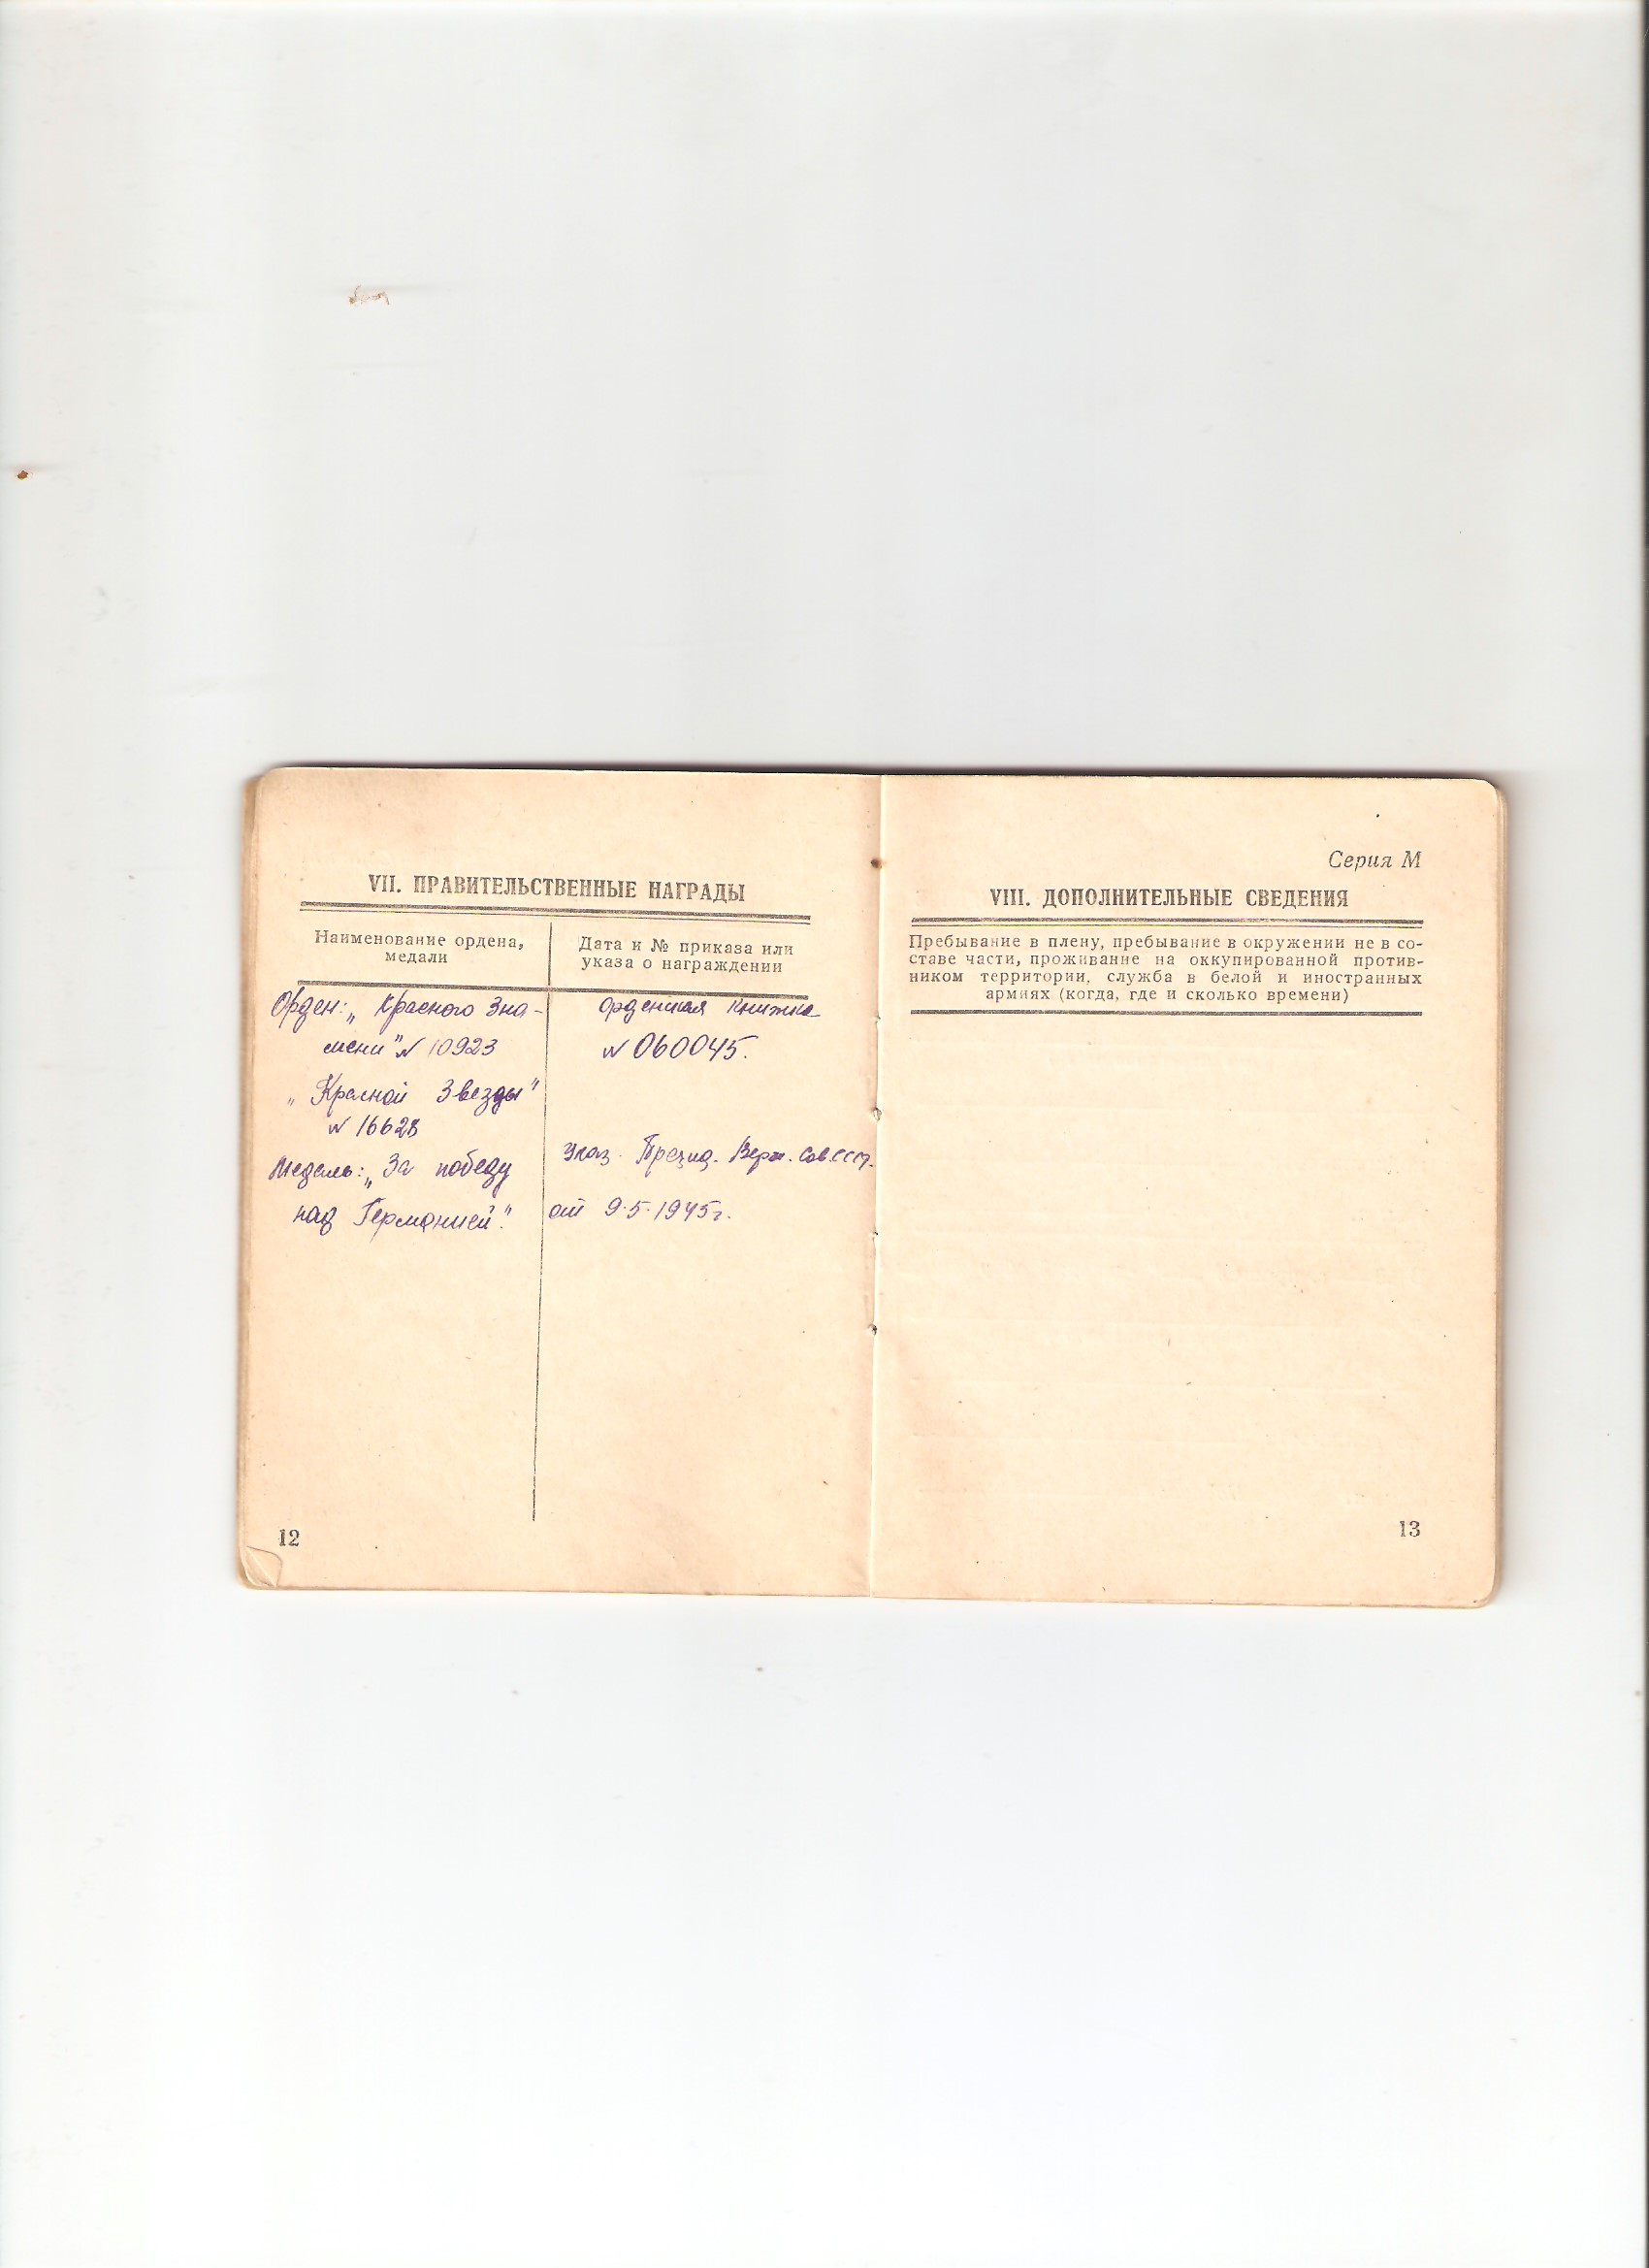 VII. ПРАВИТЕЛЬСТВЕННЫЕ НАГРАДЫ
Наименование ордена,
медали
Дата и № приказа или
указа о награждении
Орден: „Красного Зна-
мени" № 10923
„Красной Звезды"
№ 16628
Медаль: „За победу
над Германией."
Орденская книжка
№ 060045.
Указ. Презид. Верх. Сов. СССР.
от 9.5.1945г.
12
Серия М
VIII. ДОПОЛНИТЕЛЬНЫЕ СВЕДЕНИЯ
Пребывание в плену, пребывание в окружении не в со-
ставе части, проживание на оккупированной против-
ником территории, служба в белой и иностранных
армиях (когда, где и сколько времени)
13